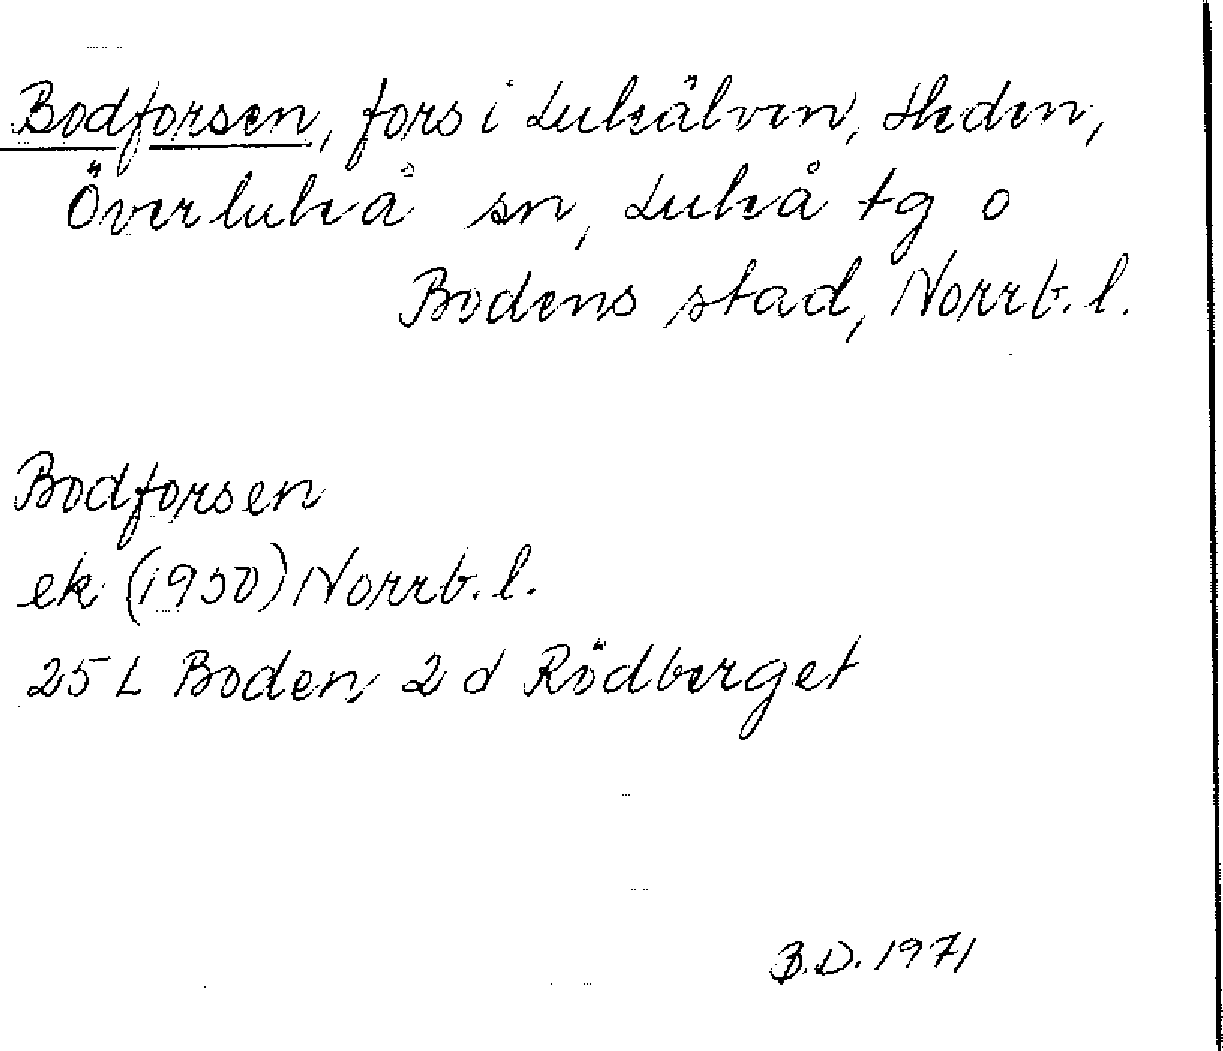 Bodforsen, fors i Luleälven, Heden,
Överluleå sn, Luleå tg o
Bodens stad, Norrb. l.
Bodforsen
ek (1950) Norrb. l.
25 L Boden 2 d Rödberget
B.D. 1971